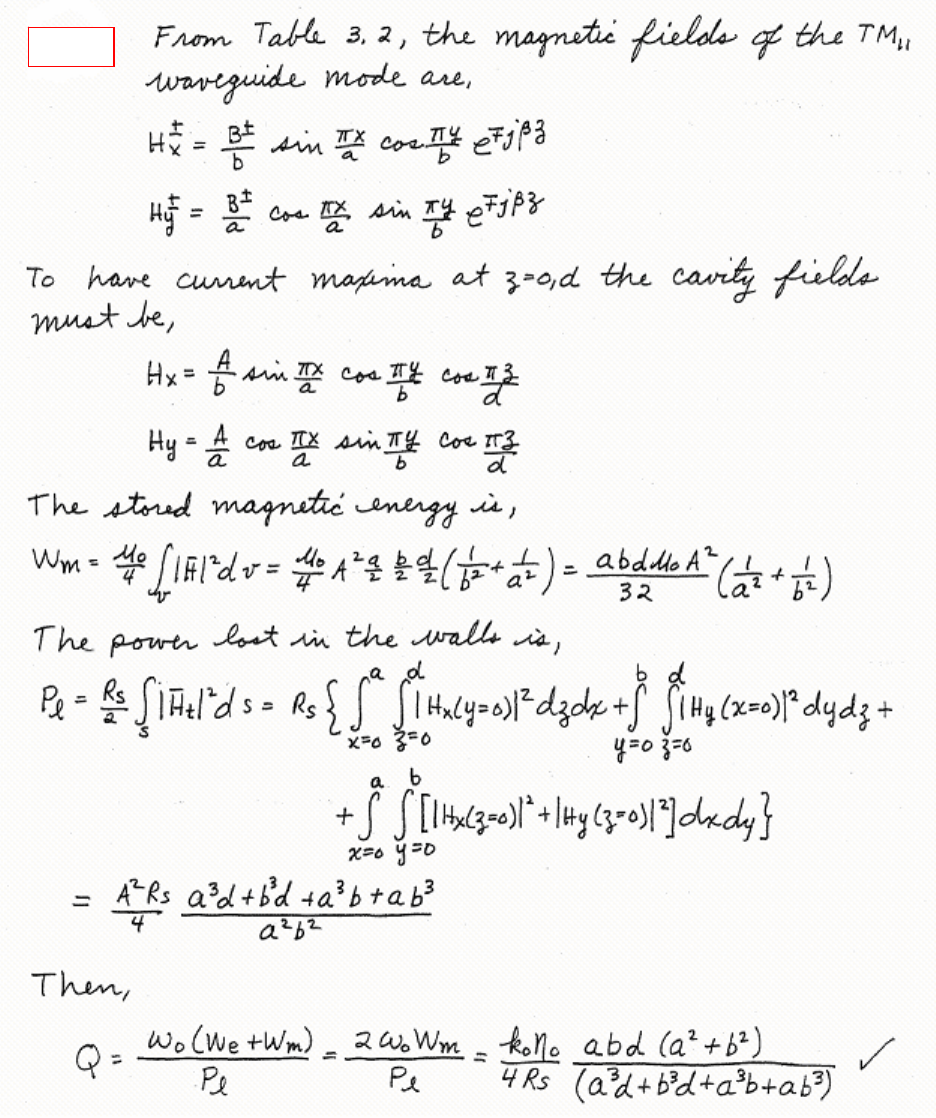 From Table 3.2, the magnetic fields of the TM₁₁
waveguide mode are,
Hx^± = B^±/b sin πx/a cos πy/b e^∓jβz
Hy^± = B^±/a cos πx/a sin πy/b e^∓jβz
To have current maxima at z=0,d the cavity fields
must be,
Hx = A/b sin πx/a cos πy/b cos πz/d
Hy = A/a cos πx/a sin πy/b cos πz/d
The stored magnetic energy is,
Wm = μ₀/4 ∫_v |H̄|² dv = μ₀/4 A² a/2 b/2 d/2 (1/b² + 1/a²) = abdμ₀A²/32 (1/a² + 1/b²)
The power lost in the walls is,
Pℓ = Rs/2 ∫_s |H̄t|² ds = Rs { ∫_{x=0}^{a} ∫_{z=0}^{d} |Hx(y=0)|² dzdx + ∫_{y=0}^{b} ∫_{z=0}^{d} |Hy(x=0)|² dydz +
+ ∫_{x=0}^{a} ∫_{y=0}^{b} [|Hx(z=0)|² + |Hy(z=0)|²] dxdy }
= A²Rs/4 (a³d + b³d + a³b + ab³)/(a²b²)
Then,
Q = ω₀(We + Wm)/Pℓ = 2ω₀Wm/Pℓ = k₀η₀/4Rs abd(a² + b²)/(a³d + b³d + a³b + ab³) ✓